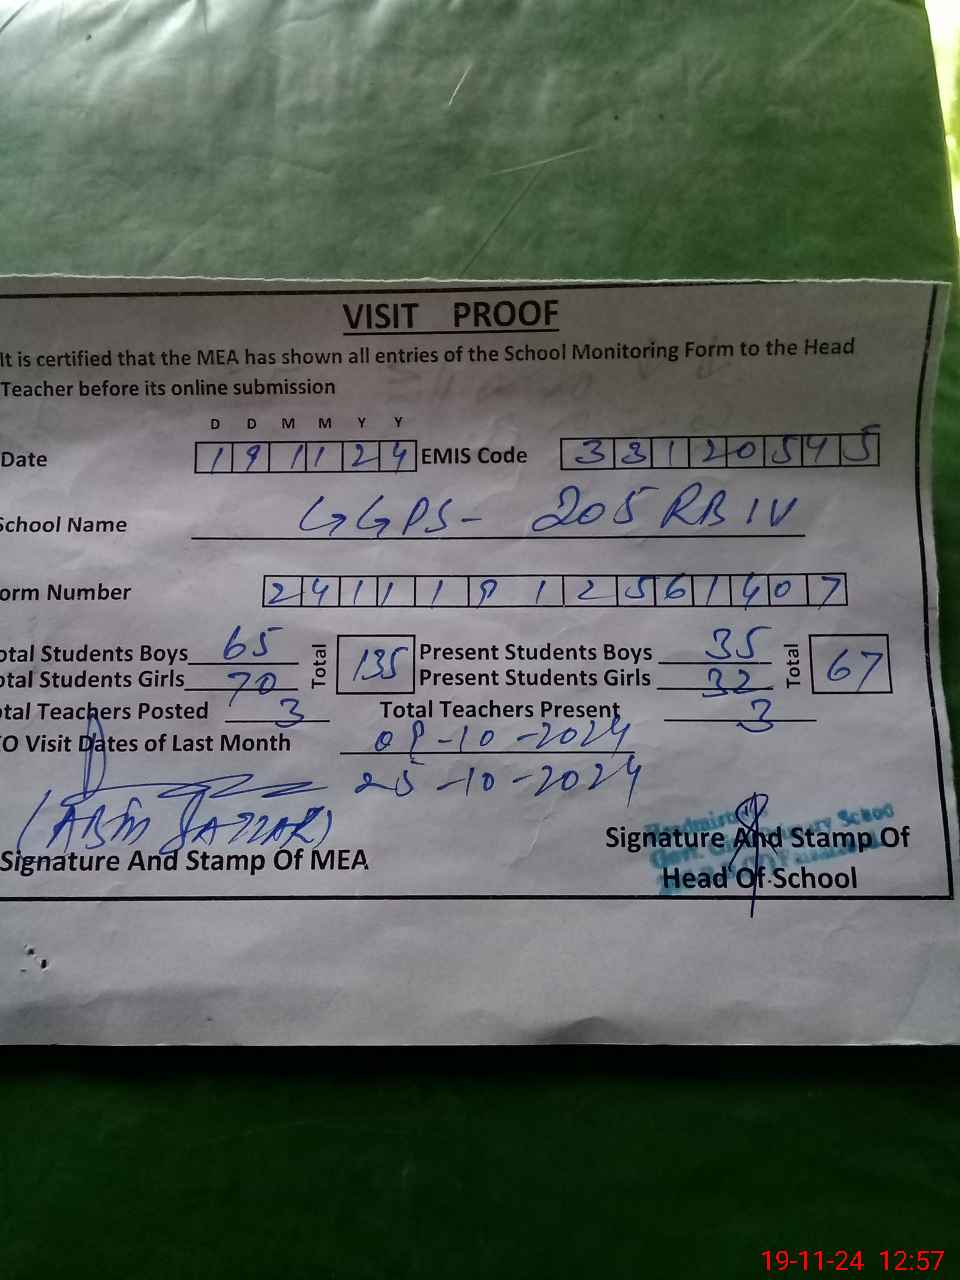 VISIT PROOF
It is certified that the MEA has shown all entries of the School Monitoring Form to the Head
Teacher before its online submission
D D M M Y Y
Date 191124 EMIS Code 33120545
School Name GGPS- 205 RB IV
orm Number 24111912561407
otal Students Boys 65 Total 135 Present Students Boys 35 Total 67
otal Students Girls 70 Present Students Girls 32
tal Teachers Posted 3 Total Teachers Present 3
EO Visit Dates of Last Month 09-10-2024
25-10-2024
Signature And Stamp Of MEA
Signature And Stamp Of
Head Of School
19-11-24 12:57